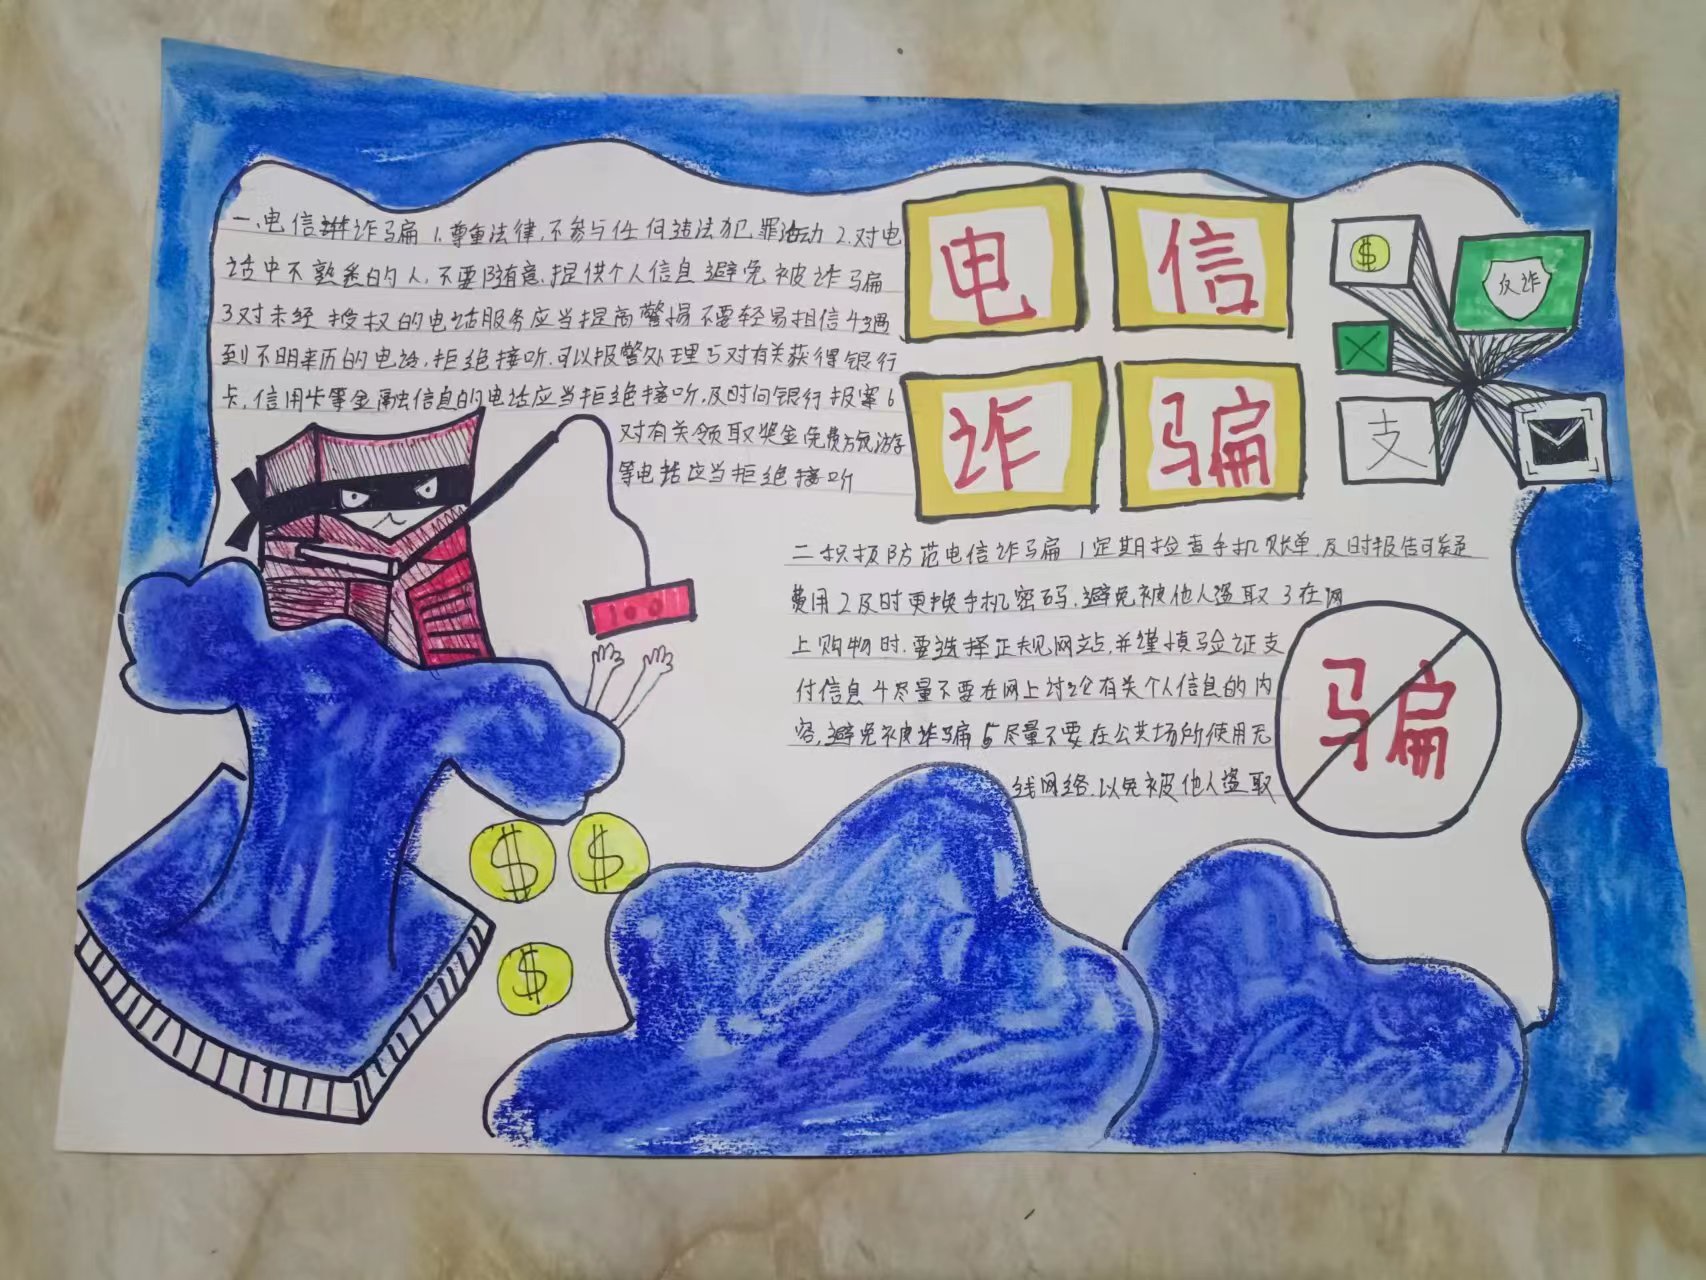 一、电信诈骗 1.尊重法律,不参与任何违法犯罪活动 2.对电
话中不熟悉的人,不要随意提供个人信息避免被诈骗
3对未经授权的电话服务应当提高警惕不要轻易相信4遇
到不明来历的电话,拒绝接听,可以报警处理5对有关获得银行
卡,信用卡等金融信息的电话应当拒绝接听,及时向银行报案6
对有关领取奖金免费旅游
等电话应当拒绝接听
电 信
诈 骗
$
反诈
支
100
二积极防范电信诈骗 1定期检查手机账单,及时报告可疑
费用2及时更换手机密码,避免被他人盗取3在网
上购物时,要选择正规网站,并谨慎验证支
付信息4尽量不要在网上讨论有关个人信息的内
容,避免被诈骗5尽量不要在公共场所使用无
线网络,以免被他人盗取
骗
$ $
$